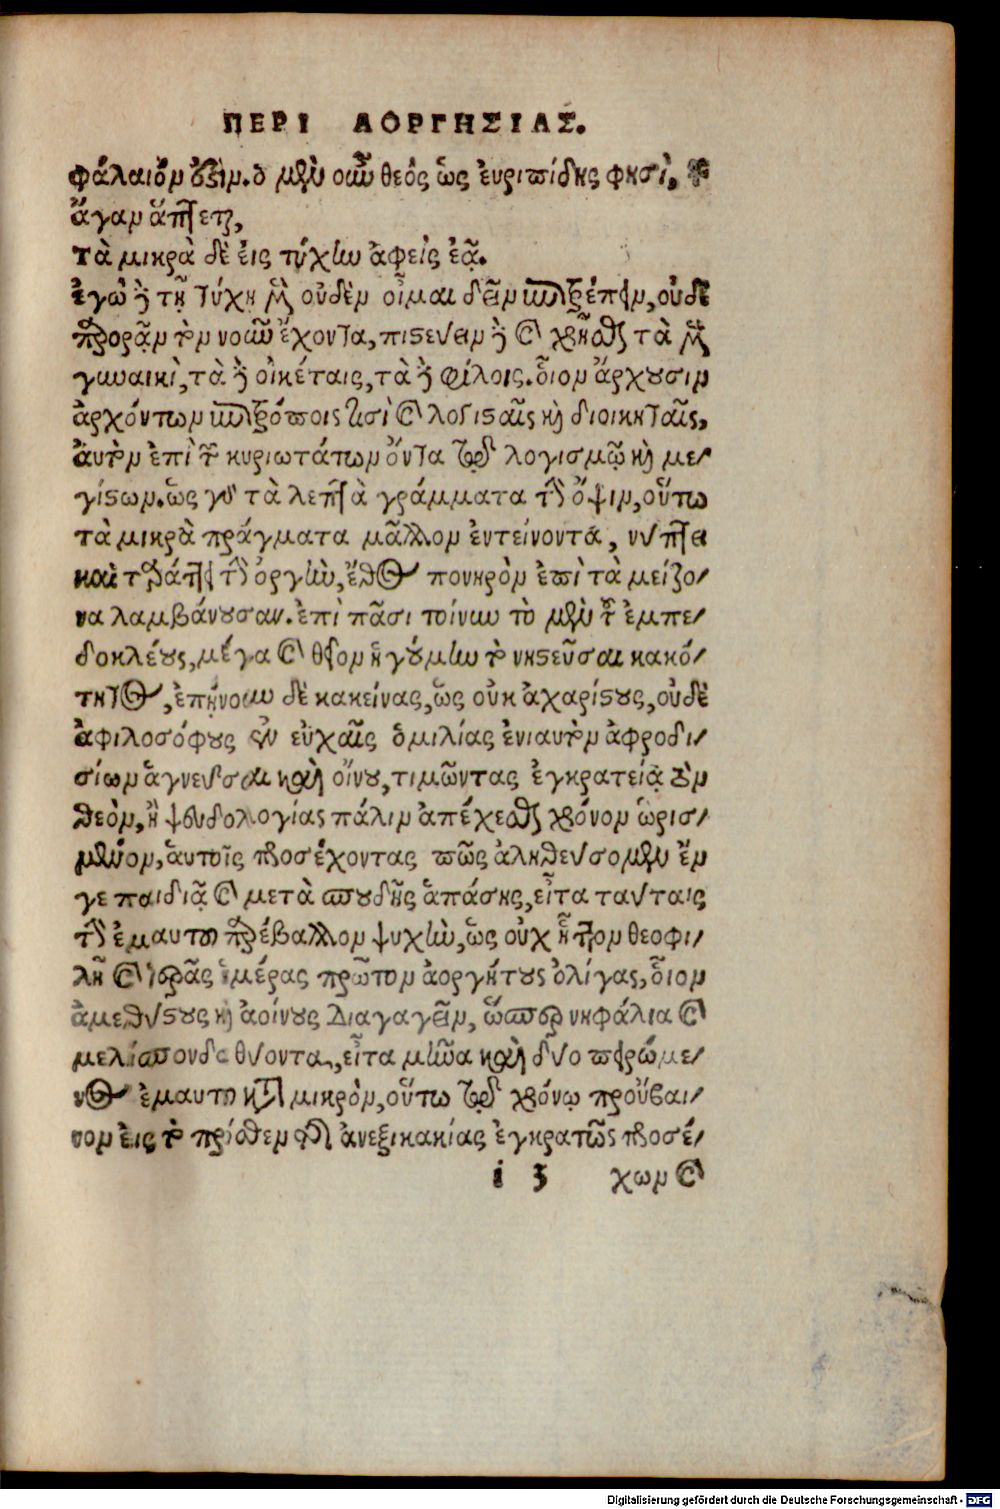 ΠΕΡΙ ΑΟΡΓΗΣΙΑΣ.
φάλαιόν ὅξιν. ὁ μὲν οὖν θεὸς ὡς ἐυριπίδης φησὶ, τ
ἄγαν ἅπτεται,
τὰ μικρὰ δὲ ἐις τύχην ἀφεὶς ἐᾷ.
ἐγὼ δὲ τῇ τύχῃ μὲν οὐδὲν οἶμαι δεῖν ἐπιτρέπειν, οὐδὲ
παρορᾷν τὸν νοῦν ἔχοντα, πιστεύειν δὲ καὶ χρῆσθαι τὰ μὲν
γυναικὶ, τὰ δὲ οἰκέταις, τὰ δὲ φίλοις. οἷον ἄρχουσιν
ἀρχόντων ἐπιτρόποις τισὶ καὶ λογισταῖς καὶ διοικηταῖς,
ἀυτὸν ἐπὶ τῶν κυριωτάτων ὄντα τῷ λογισμῷ καὶ με-
γίστων. ὡς γὰρ τὰ λεπτὰ γράμματα τὴν ὄψιν, οὕτω
τὰ μικρὰ πράγματα μᾶλλον ἐντείνοντα, νύττει
καὶ ταράττει τὴν ὀργὴν, ἔθος πονηρὸν ἐπὶ τὰ μείζο-
να λαμβάνουσαν. ἐπὶ πᾶσι τοίνυν τὸ μὲν τοῦ ἐμπε-
δοκλέους, μέγα καὶ θεῖον ἡγούμην τὸ νηστεῦσαι κακό-
τητος, ἐπῄνουν δὲ κακείνας, ὡς οὐκ ἀχαρίστους, οὐδὲ
ἀφιλοσόφους ἐν εὐχαῖς ὁμιλίας ἐνιαυτὸν ἀφροδι-
σίων ἁγνεῦσαι καὶ οἴνου, τιμῶντας ἐγκρατείᾳ τὸν
θεὸν, ἢ ψευδολογίας πάλιν ἀπέχεσθαι χρόνον ὡρισ-
μένον, ἁυτοῖς προσέχοντας πῶς ἀληθεύσομεν ἔν
γε παιδιᾷ καὶ μετὰ σπουδῆς ἁπάσης, εἶτα ταύταις
τὴν ἐμαυτοῦ παρέβαλλον ψυχὴν, ὡς οὐχ ἧττον θεοφι-
λῆ καὶ ἱερᾶς ἡμέρας πρῶτον ἀοργήτους ὀλίγας, οἷον
ἀμεθύστους καὶ ἀοίνους Διαγαγεῖν, ὥσπερ νηφάλια καὶ
μελίσπονδα θύοντα, εἶτα μῆνα καὶ δύο πειρώμε-
νος ἐμαυτοῦ κατὰ μικρὸν, οὕτω τῷ χρόνῳ προὔβαι-
νον ἐις τὸ πρόσθεν τῆς ἀνεξικακίας ἐγκρατῶς προσέ-
i 3 χων καὶ
Digitalisierung gefördert durch die Deutsche Forschungsgemeinschaft - DFG